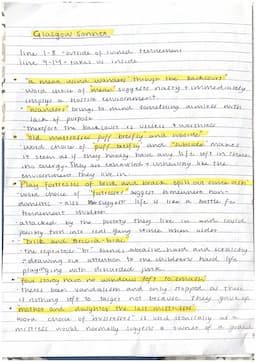 Glasgow Sonnet
line 1-8 - outside of ruined tennement
line 9-14 - takes us inside
• "a mean wind wanders through the backcourt"
word choice of "mean" suggests nasty + immediately
implys a hostile environment
• "wanders" brings to mind something aimless with
lack of purpose
therefore the backcourt is useless + worthless
• "old mattresses puff briefly and subside"
word choice of "puff briefly" and "subside" makes
it seem as if they hardly have any life left in them
no energy. They are exhausted + unhealthy like the
environment they live in
• Play fortresses of brick and brack spill out some ash
word choice of "fortress" suggest
domestic - also suggest life is like a battle for
tennement children
attacked by the poverty they live in and could
possibly turn into real gang sites when older
• "brick and bric-a-brac"
the repeated "b" sound
drawing our attention to the childrens hard life
playing with discarded junk
• four storeys have no windows left to smash
There been vandalism and only stopped as there
is nothing left to target not because they gave up
• mother and daughter the last mistresses
word choice of mistresses is used ironically as a
mistress would normally suggest a owner of a